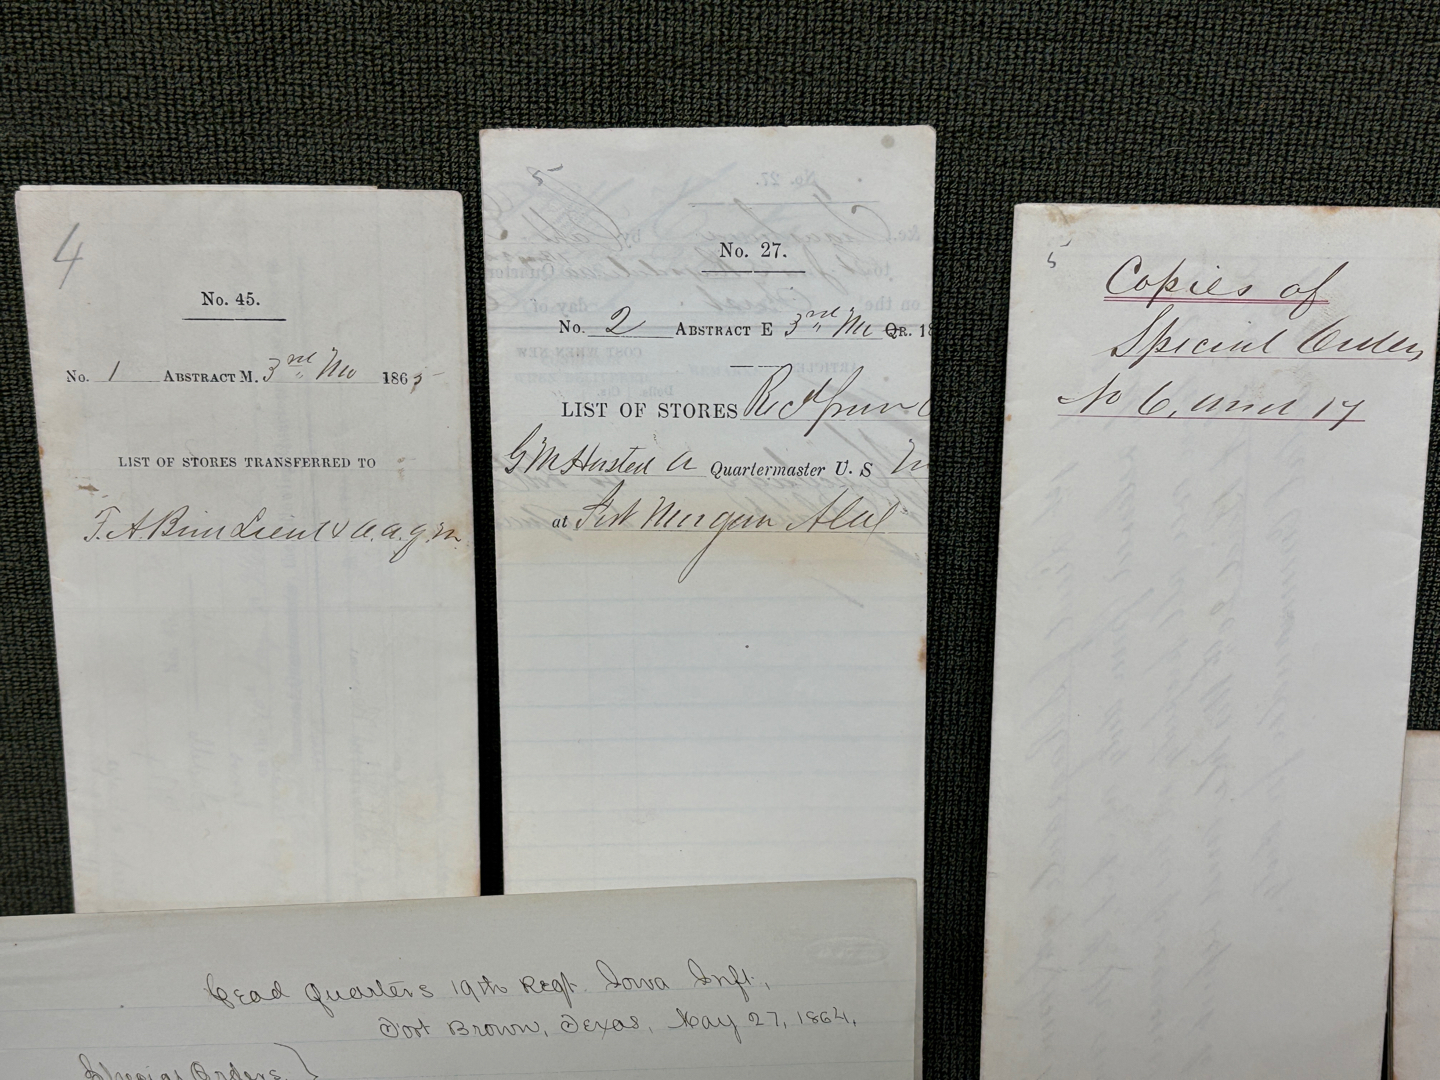 4
No. 45.
No. 1 ABSTRACT M. 3rd Mo 1865
LIST OF STORES TRANSFERRED TO
F. A. Bim Lieut & a.a.q.m.
5
No. 27.
No. 2 ABSTRACT E 3rd Mo QR. 18
LIST OF STORES Rec'd from
G M Horsted Quartermaster U. S
at Fort Morgan Ala
5
Copies of
Special Orders
No 6, and 17
Head Quarters 19th Regt. Iowa Inft.,
Fort Brown, Texas, May 27, 1864.
Special Orders }